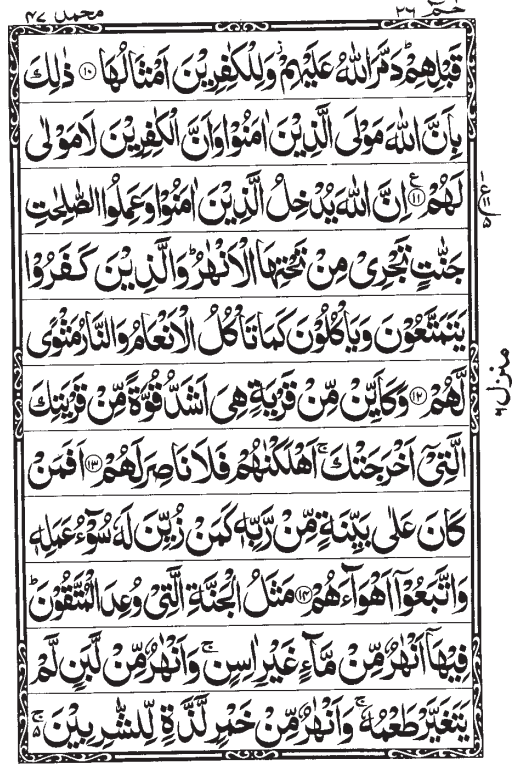 حٰمٓ ٢٦
محمد ٤٧
قَبْلِهِمْ ؕ دَمَّرَ اللّٰهُ عَلَیْهِمْ ؗ وَلِلْكٰفِرِیْنَ اَمْثَالُهَا ۝۱۰ ذٰلِكَ
بِاَنَّ اللّٰهَ مَوْلَی الَّذِیْنَ اٰمَنُوْا وَاَنَّ الْكٰفِرِیْنَ لَا مَوْلٰی
لَهُمْ ۝۱۱ ع اِنَّ اللّٰهَ یُدْخِلُ الَّذِیْنَ اٰمَنُوْا وَعَمِلُوا الصّٰلِحٰتِ
جَنّٰتٍ تَجْرِیْ مِنْ تَحْتِهَا الْاَنْهٰرُ ؕ وَالَّذِیْنَ كَفَرُوْا
یَتَمَتَّعُوْنَ وَیَاْكُلُوْنَ كَمَا تَاْكُلُ الْاَنْعَامُ وَالنَّارُ مَثْوًی
لَّهُمْ ۝۱۲ وَكَاَیِّنْ مِّنْ قَرْیَةٍ هِیَ اَشَدُّ قُوَّةً مِّنْ قَرْیَتِكَ
الَّتِیْۤ اَخْرَجَتْكَ ۚ اَهْلَكْنٰهُمْ فَلَا نَاصِرَ لَهُمْ ۝۱۳ اَفَمَنْ
كَانَ عَلٰی بَیِّنَةٍ مِّنْ رَّبِّهٖ كَمَنْ زُیِّنَ لَهٗ سُوْٓءُ عَمَلِهٖ
وَاتَّبَعُوْۤا اَهْوَآءَهُمْ ۝۱۴ مَثَلُ الْجَنَّةِ الَّتِیْ وُعِدَ الْمُتَّقُوْنَ ؕ
فِیْهَاۤ اَنْهٰرٌ مِّنْ مَّآءٍ غَیْرِ اٰسِنٍ ۚ وَاَنْهٰرٌ مِّنْ لَّبَنٍ لَّمْ
یَتَغَیَّرْ طَعْمُهٗ ۚ وَاَنْهٰرٌ مِّنْ خَمْرٍ لَّذَّةٍ لِّلشّٰرِبِیْنَ ۚ۬
منزل ٦